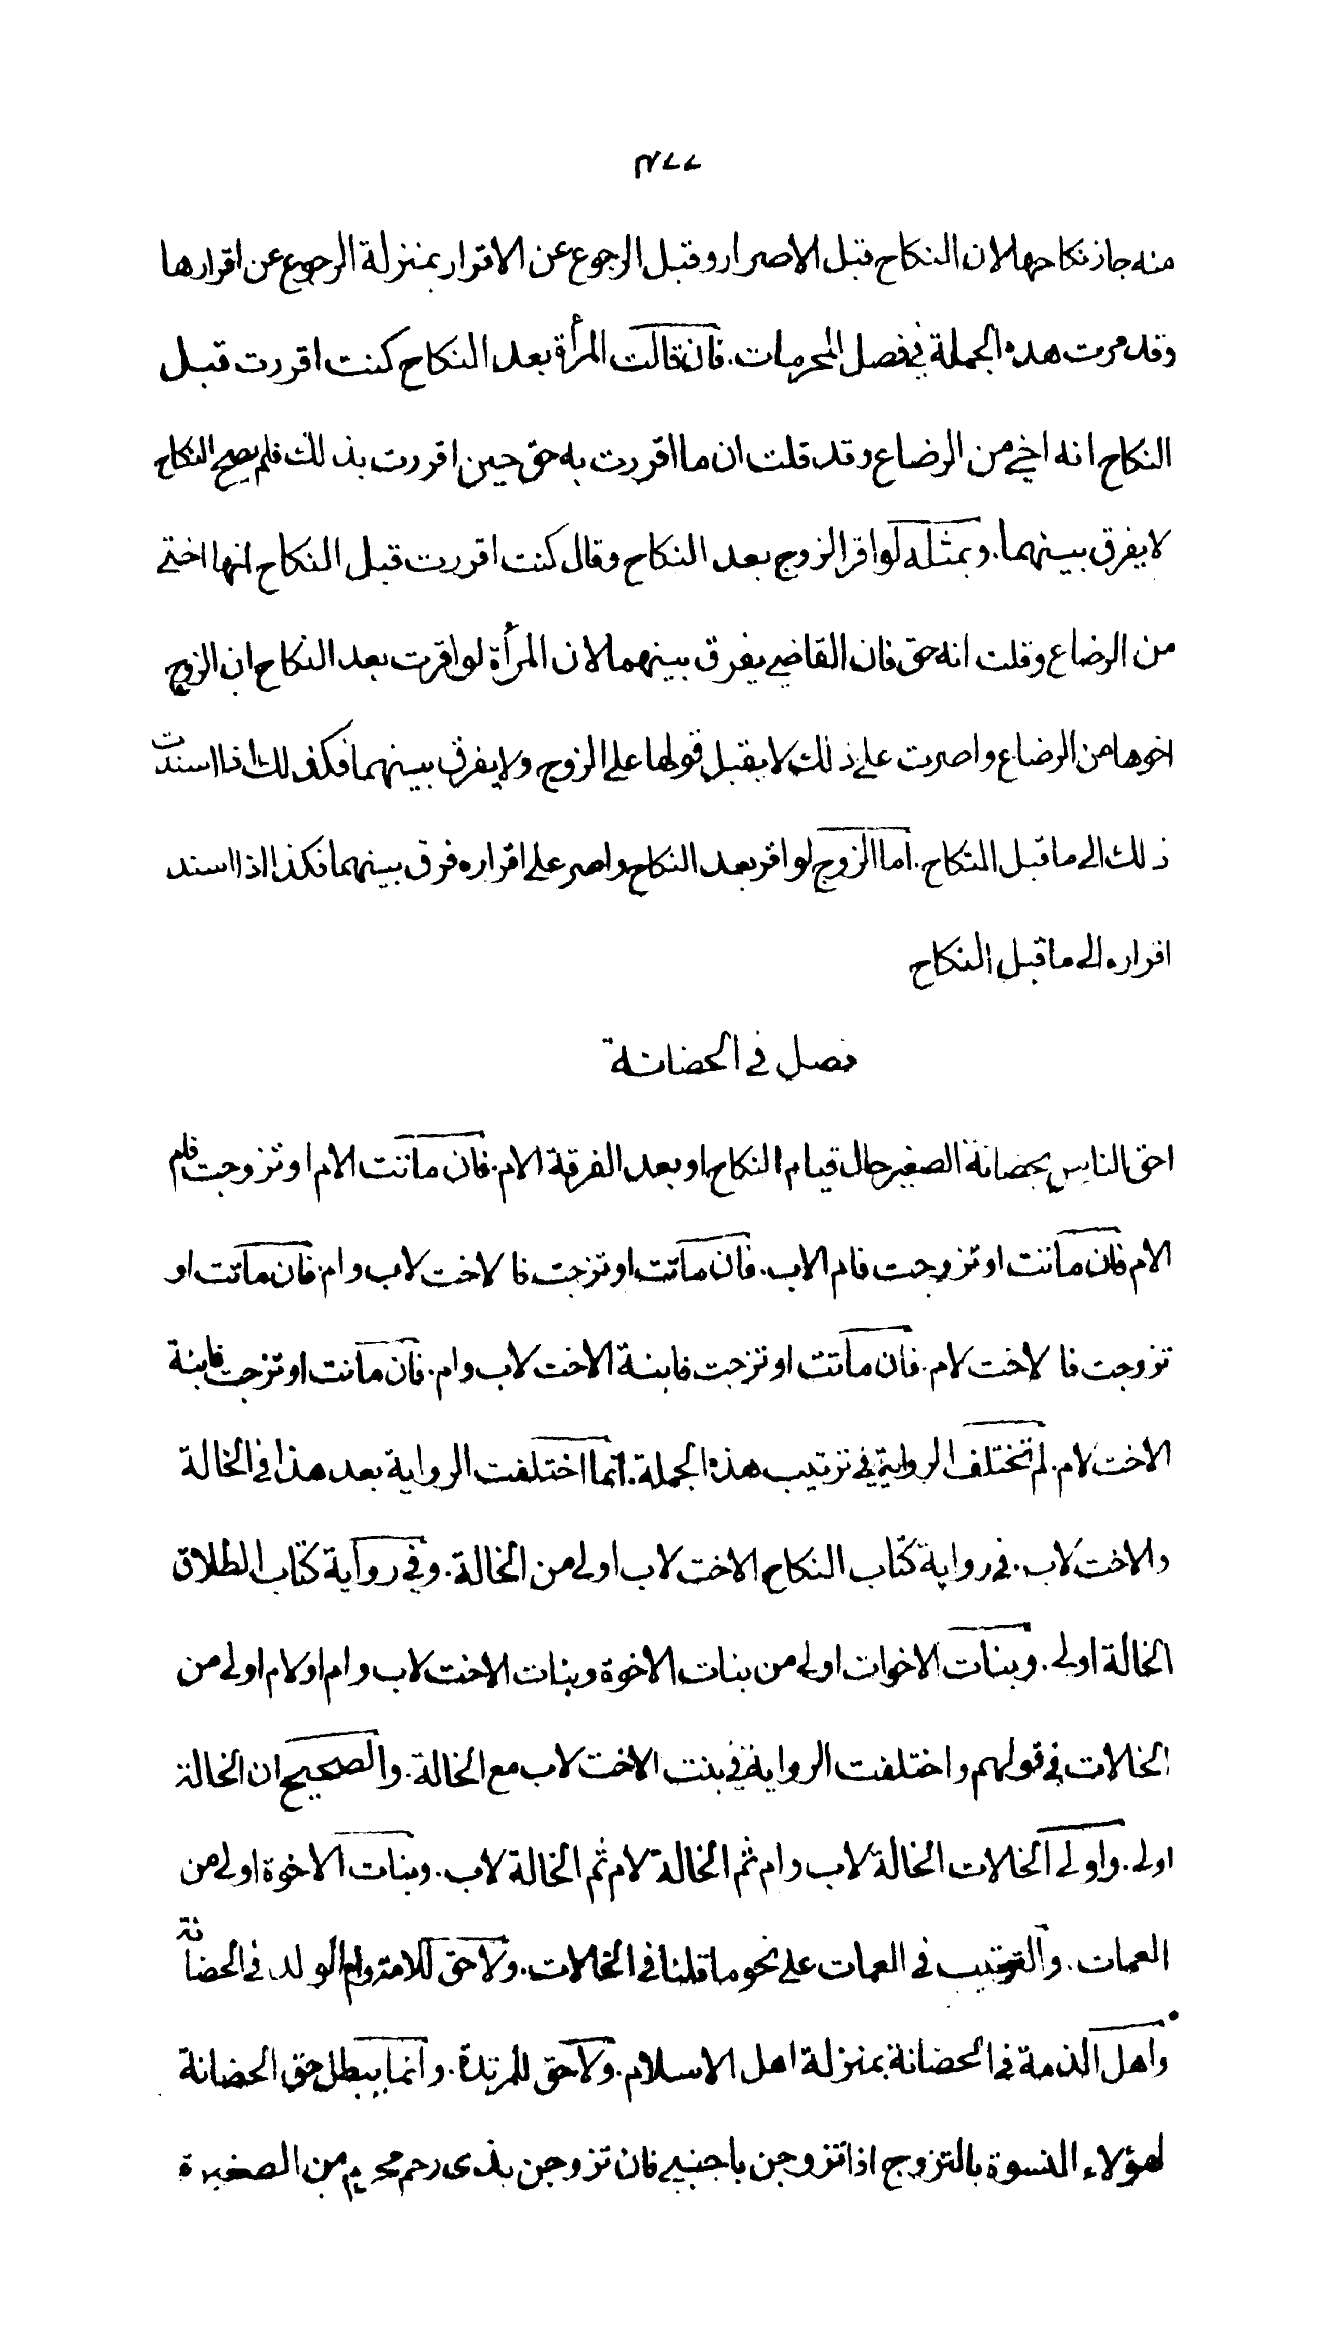 ٤٧٧
منه جاز نكاحها لان النكاح قبل الاصرار وقبل الرجوع عن الاقرار بمنزلة الرجوع عن اقرارها
وقد مرت هذه الجملة في فصل المحرمات. فان قالت المرأة بعد النكاح كنت اقررت قبل
النكاح انه اخي من الرضاع وقد قلت ان ما اقررت به حق حين اقررت بذلك فلم يصح النكاح
لا يفرق بينهما. وبمثله لو اقر الزوج بعد النكاح وقال كنت اقررت قبل النكاح انها اختي
من الرضاع وقلت انه حق فان القاضي يفرق بينهما لان المرأة لو اقرت بعد النكاح ان الزوج
اخوها من الرضاع واصرت على ذلك لا يقبل قولها على الزوج ولا يفرق بينهما فكذلك اذا اسندت
ذلك الى ما قبل النكاح. اما الزوج لو اقر بعد النكاح واصر على اقراره فرق بينهما فكذا اذا اسند
اقراره الى ما قبل النكاح
فصل في الحضانة
احق الناس بحضانة الصغير حال قيام النكاح او بعد الفرقة الام. فان ماتت الام او تزوجت فام
الام فان ماتت او تزوجت فام الاب. فان ماتت او تزجت فالاخت لاب وام. فان ماتت او
تزوجت فالاخت لام. فان ماتت او تزجت فابنة الاخت لاب وام. فان ماتت او تزجت فابنة
الاخت لام. لم تختلف الرواية في ترتيب هذه الجملة. انما اختلفت الرواية بعد هذا في الخالة
والاخت لاب. في رواية كتاب النكاح الاخت لاب اولى من الخالة. وفي رواية كتاب الطلاق
الخالة اولى. وبنات الاخوات اولى من بنات الاخوة وبنات الاخت لاب وام او لام اولى من
الخالات في قولهم واختلفت الرواية في بنت الاخت لاب مع الخالة. والصحيح ان الخالة
اولى. واولى الخالات الخالة لاب وام ثم الخالة لام ثم الخالة لاب. وبنات الاخوة اولى من
العمات. والترتيب في العمات على نحو ما قلنا في الخالات. ولا حق للامة وام الولد في الحضانة
واهل الذمة في الحضانة بمنزلة اهل الاسلام. ولا حق للمرتدة. وانما يبطل حق الحضانة
لهؤلاء النسوة بالتزوج اذا تزوجن باجنبي فان تزوجن بذى رحم محرم من الصغيرة